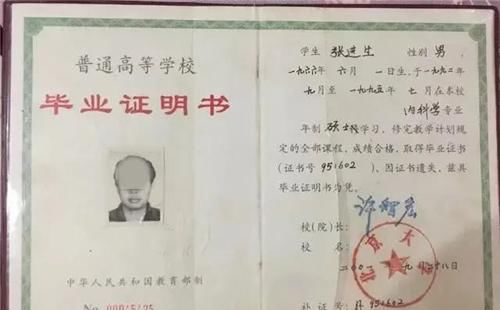 普通高等学校
毕业证明书
中华人民共和国教育部制
No.
学生 张进生 性别 男
一九六六年 六月 一日生,于一九九二年
九月至 一九九五年 七月在本校
内科学专业
年制 硕士 学习,修完教学计划规
定的全部课程,成绩合格,取得毕业证书
(证书号 951602),因证书遗失,兹具
毕业证明书为凭。
校(院)长:
许智宏
校 名:
北京大
二〇〇一年九月二十八日
补 证 号: 951602